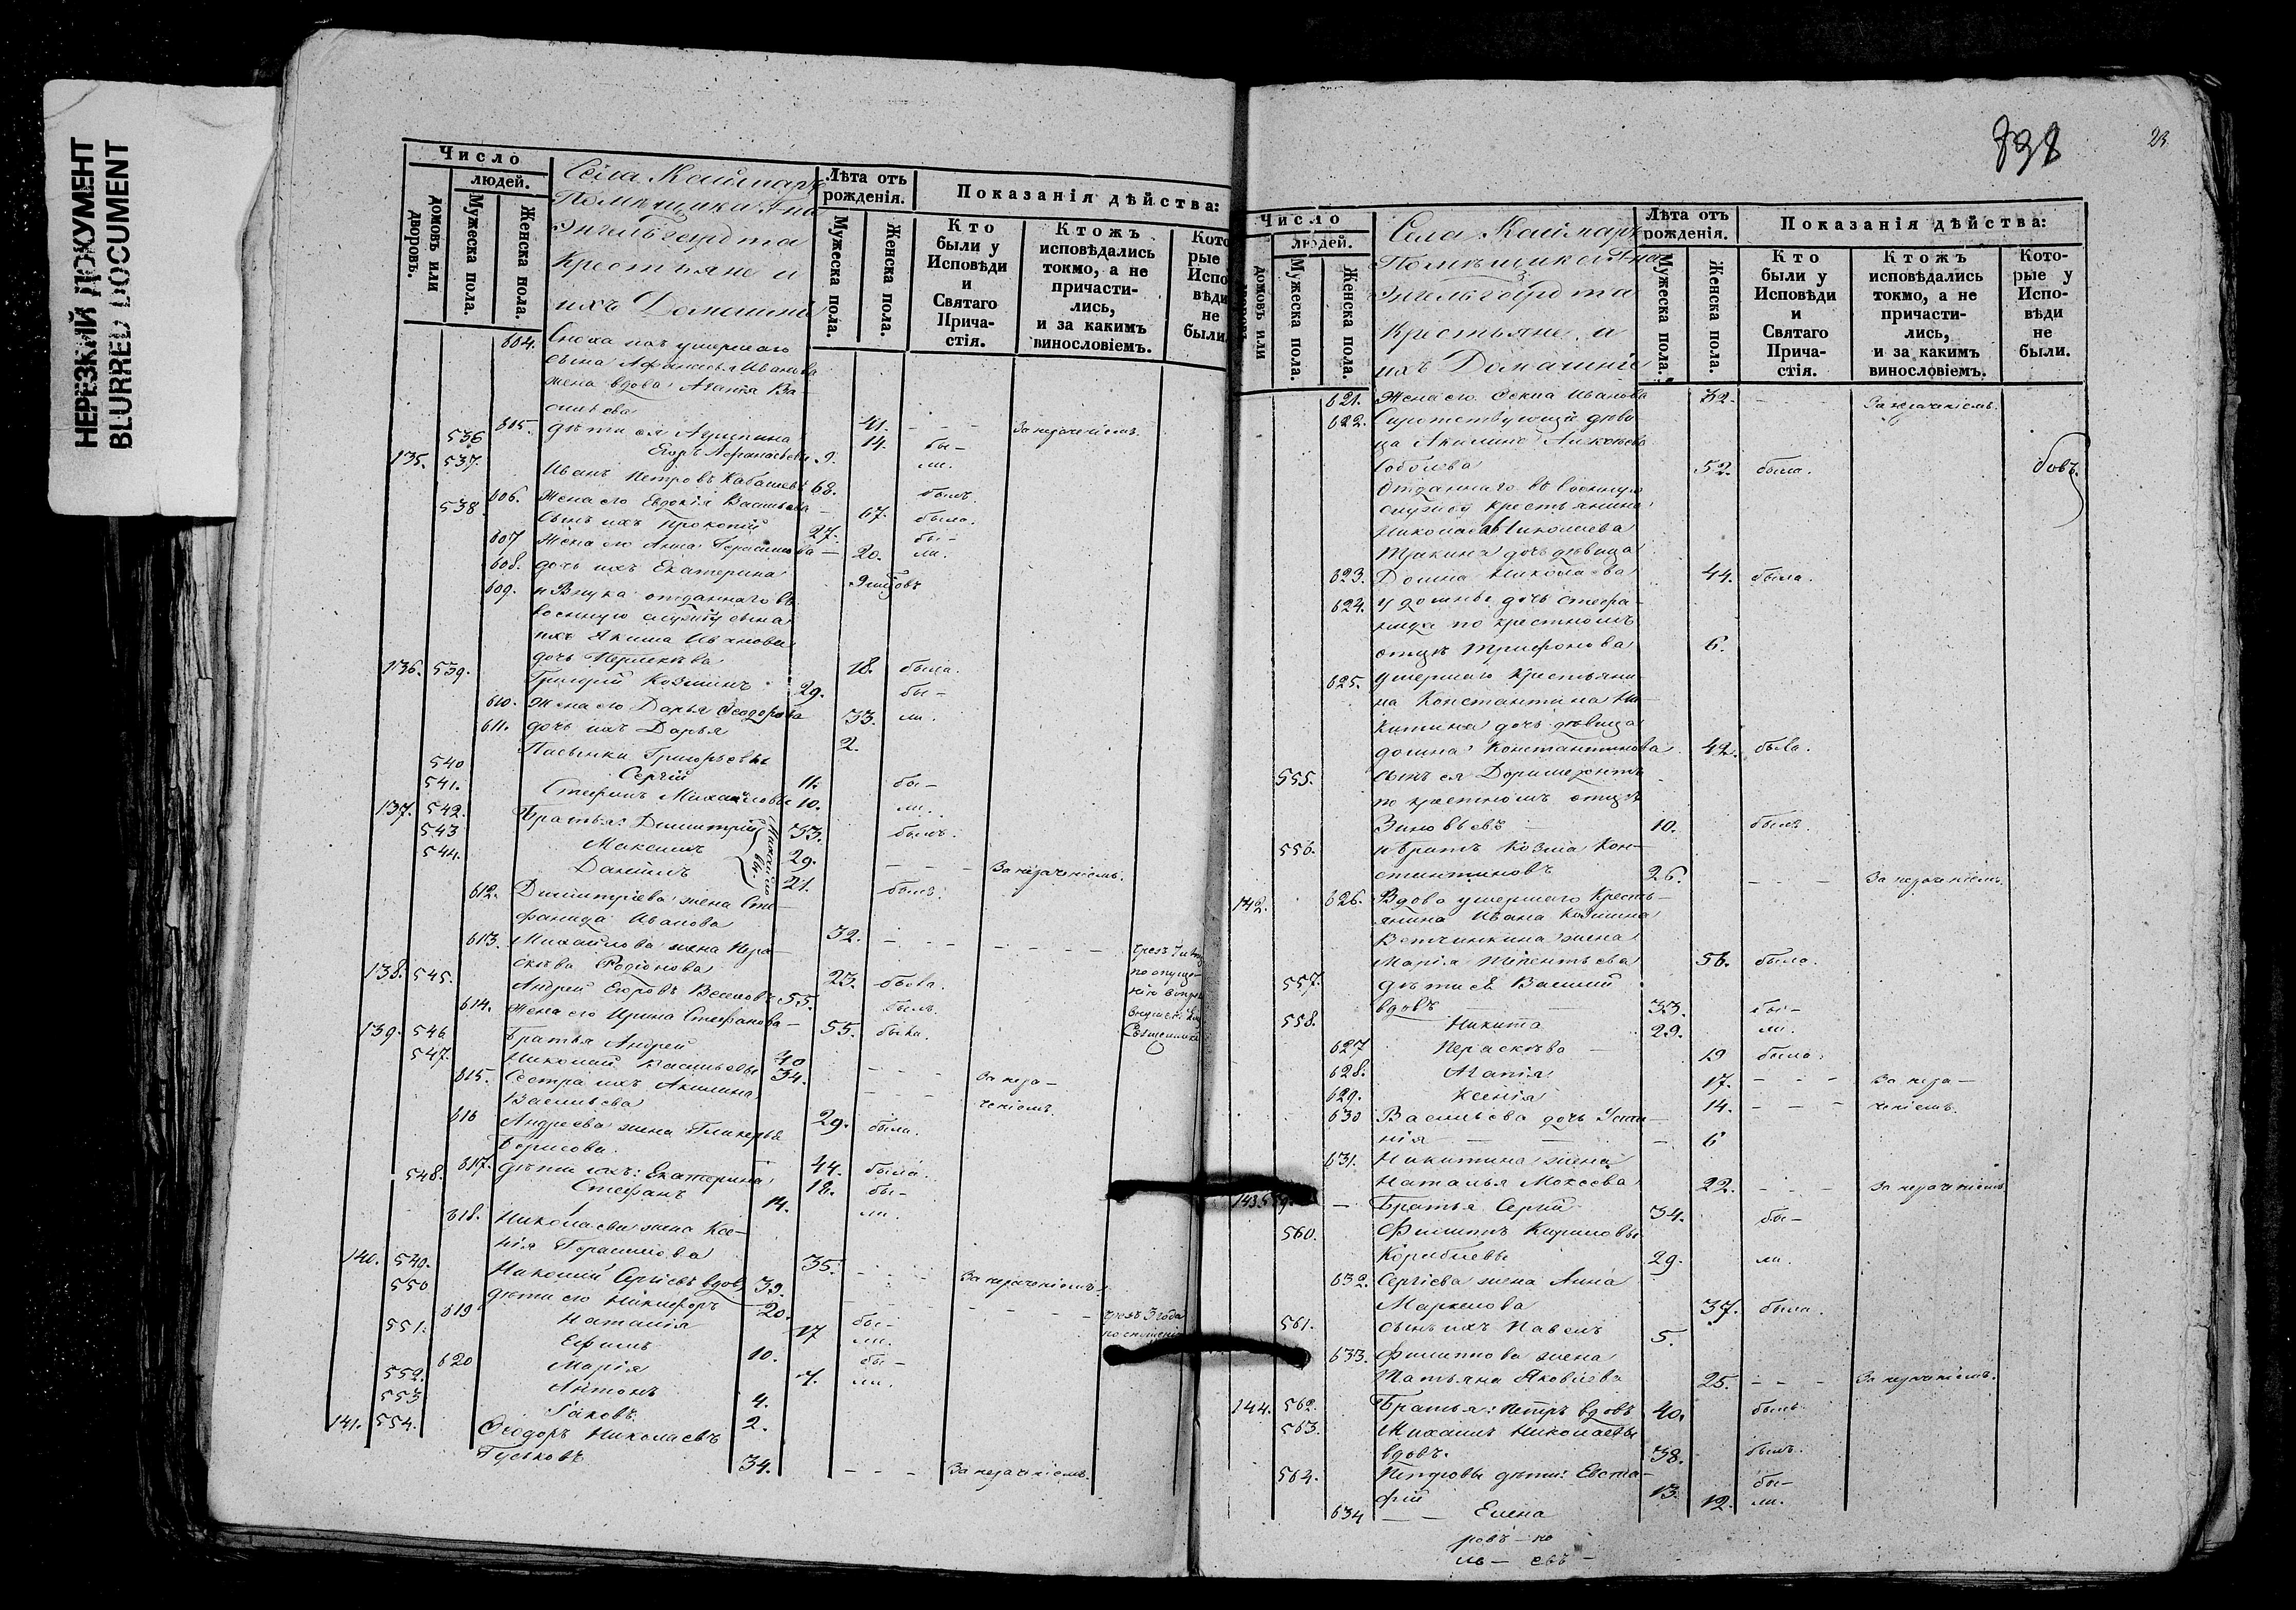 НЕРЕЗКИЙ ДОКУМЕНТ
BLURRED DOCUMENT
Число
людей.
домовъ или дворовъ.
Мужеска пола.
Женска пола.
Села Каймаръ
Помѣщика
Энгельгардта
Крестьяне и
ихъ Домашніе
Лѣта отъ рожденія.
Мужеска пола.
Женска пола.
Показанія дѣйства:
Кто были у Исповѣди и Святаго Прича-стія.
Ктожъ исповѣдались токмо, а не причасти-лись, и за какимъ винословіемъ.
Кото рые Испо вѣди не были
604. Сноха ихъ умершаго
сына Афанасья Иванова
жена вдова Агапія Ва-
сильева 41. - - - За нераченіемъ.
615. дѣти ея Акулина 14. бы-
536 Егоръ Афанасьевъ 9. ли.
135. 537. Иванъ Петровъ Кабашевъ 68. былъ.
606. Жена его Евдокія Васильева 67. была.
538 Сынъ ихъ Прокопій 27. бы-
607 Жена его Анна Герасимова - 20. ли.
608. дочь ихъ Екатерина
609. и Внука отданнаго въ
военную службу сына
ихъ Якима Иванова
дочь 18. была.
136. 539. Григорій Козминъ 29. бы-
610. Жена его Дарья Ѳеодорова 33. ли.
611. дочь ихъ Дарья 2.
Пасынки Григорьевы
540 Сергій 11. бы-
541. Стефанъ Михайловы 10. ли.
137. 542. Братья: Димитрій 33. былъ.
543 Максимъ 29. - - - За нераченіемъ.
544. Даніилъ 21. былъ.
612. Димитріева жена Сте-
фанида Иванова 32. - - - - - -
613. Михайлова жена Пара-
скева Родіонова 23. была.
138. 545. Андрей Егоровъ 55. былъ.
614. Жена его Ирина Стефанова - 55. была.
139. 546 Братья Андрей 40
547. Николай Васильевы 34. - - - За нера-
615. Сестра ихъ Акилина - - - ченіемъ.
Васильева 29. была.
616 Андреева жена Гликерья
Борисова. 44. была.
617. дѣти ихъ: Екатерина 18. бы-
548. Стефанъ 14. ли.
618. Николаева жена Ксе-
нія Герасимова 35. - - - За нераченіемъ.
140. 549. Николай Сергіевъ вдовъ 39.
550 дѣти его Никифоръ 20. - - -
619 Наталія 17 бы-
551. Ефимъ 10. ли.
620 Марія 7. бы-
552. Антонъ 4. ли.
553 Іаковъ 2.
141. 554. Ѳеодоръ Николаевъ
Гуськовъ 34. - - - За нераченіемъ.
898
23
Число
людей.
домовъ или
Мужеска пола.
Женска пола.
Села Каймаръ
Помѣщика
Энгельгардта
Крестьяне и
ихъ Домашніе
Лѣта отъ рожденія.
Мужеска пола.
Женска пола.
Показанія дѣйства:
Кто были у Исповѣди и Святаго Прича-стія.
Ктожъ исповѣдались токмо, а не причасти-лись, и за какимъ винословіемъ.
Кото-рые у Испо-вѣди не были.
621. Жена его Ѳекла Иванова 32. - - За нераченіемъ.
622. Сиротствующій дѣви-
ца Акилина Алексѣева
Соболева 52. была.
Отданнаго въ военную
службу крестьянина
Николая Николаева
дочь дѣвица
623. Домна Николаева 44. была.
624. у домны дочь Стефа-
нида по крестному
отцѣ Трифонова 6.
625. Умершаго Крестьяни-
на Константина Ни-
китина дочь дѣвица
домна Константинова 42. была.
555. сынъ ея Доримедонтъ
по крестномъ отцѣ
Зиновьевъ 10. былъ.
556. и братъ Козма Кон-
стантиновъ 26. - - - За нераченіемъ.
142. 626. Вдова умершаго Кресть-
янина Ивана Козмина
Ветчинкина жена
Марія 56. была.
557. дѣти ея Василій
вдовъ 33. бы-
558. Никита 29. ли.
627 Параскева - 19 была.
628. Агапія 17. - - - За нера-
629. Ксенія 14. - - - ченіемъ.
630 Васильева дочь Усти-
нія - 6
631. Никитина жена
Наталья Мокеева 22. - - - За нераченіемъ
143 559 Братья Сергій 34. бы-
560. Филиппъ Кириловы
29. ли.
632. Сергіева жена Анна
Маркелова 37. была.
561. сынъ ихъ Павелъ 5.
633. Филиппова жена
Татьяна Яковлева 25. - - - За нераченіемъ.
144. 562. Братья: Петръ вдовъ 40. былъ
563. Михаилъ Николаевы
вдовъ. 38. былъ.
564. Петровы дѣти: Евста-
фій 13. бы-
634 - - Елена 12. ли.